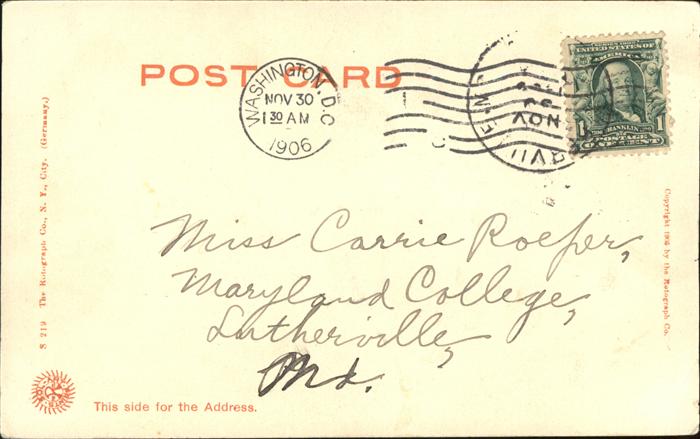 POST CARD
WASHINGTON, D.C.
NOV 30
1 30 AM
1906
NOV
SERIES 1902
UNITED STATES OF
AMERICA
FRANKLIN
1 1
POSTAGE
ONE CENT
Miss Carrie Roeper,
Maryland College,
Lutherville,
Md.
S 219 The Rotograph Co., N. Y., City. (Germany.)
Copyright 1905 by the Rotograph Co.
This side for the Address.